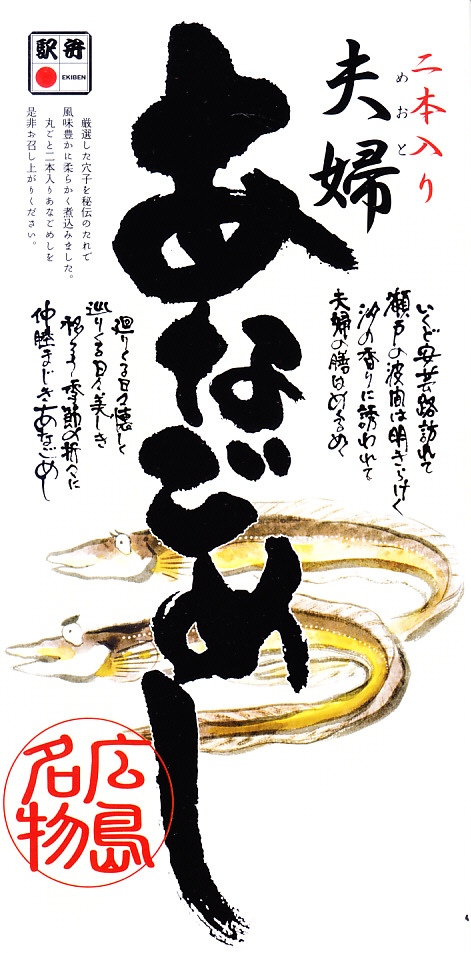 二本入り
夫婦
めおと
あなごめし
いくど安芸路訪れて
瀬戸の波間は明きらけく
汐の香りに誘われて
夫婦の膳はめぐりめく
廻りくる日々懐しく
巡りくる日々美しき
移ろう季節の折々に
仲睦まじきあなごめし
駅弁
EKIBEN
厳選した穴子を秘伝のたれで
風味豊かに柔らかく煮込みました。
丸ごと二本入りあなごめしを
是非お召し上がりください。
広島
名物